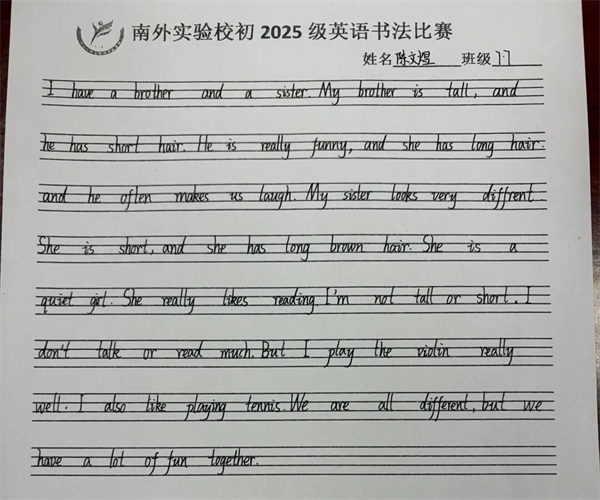 南外实验校初 2025 级英语书法比赛
姓名 陈文煜 班级 7.7
I have a brother and a sister. My brother is tall, and
he has short hair. He is really funny, and she has long hair.
and he often makes us laugh. My sister looks very diffrent
She is short, and she has long brown hair. She is a
quiet girl. She really likes reading. I'm not tall or short. I
don't talk or read much. But I play the violin really
well. I also like playing tennis. We are all different, but we
have a lot of fun together.